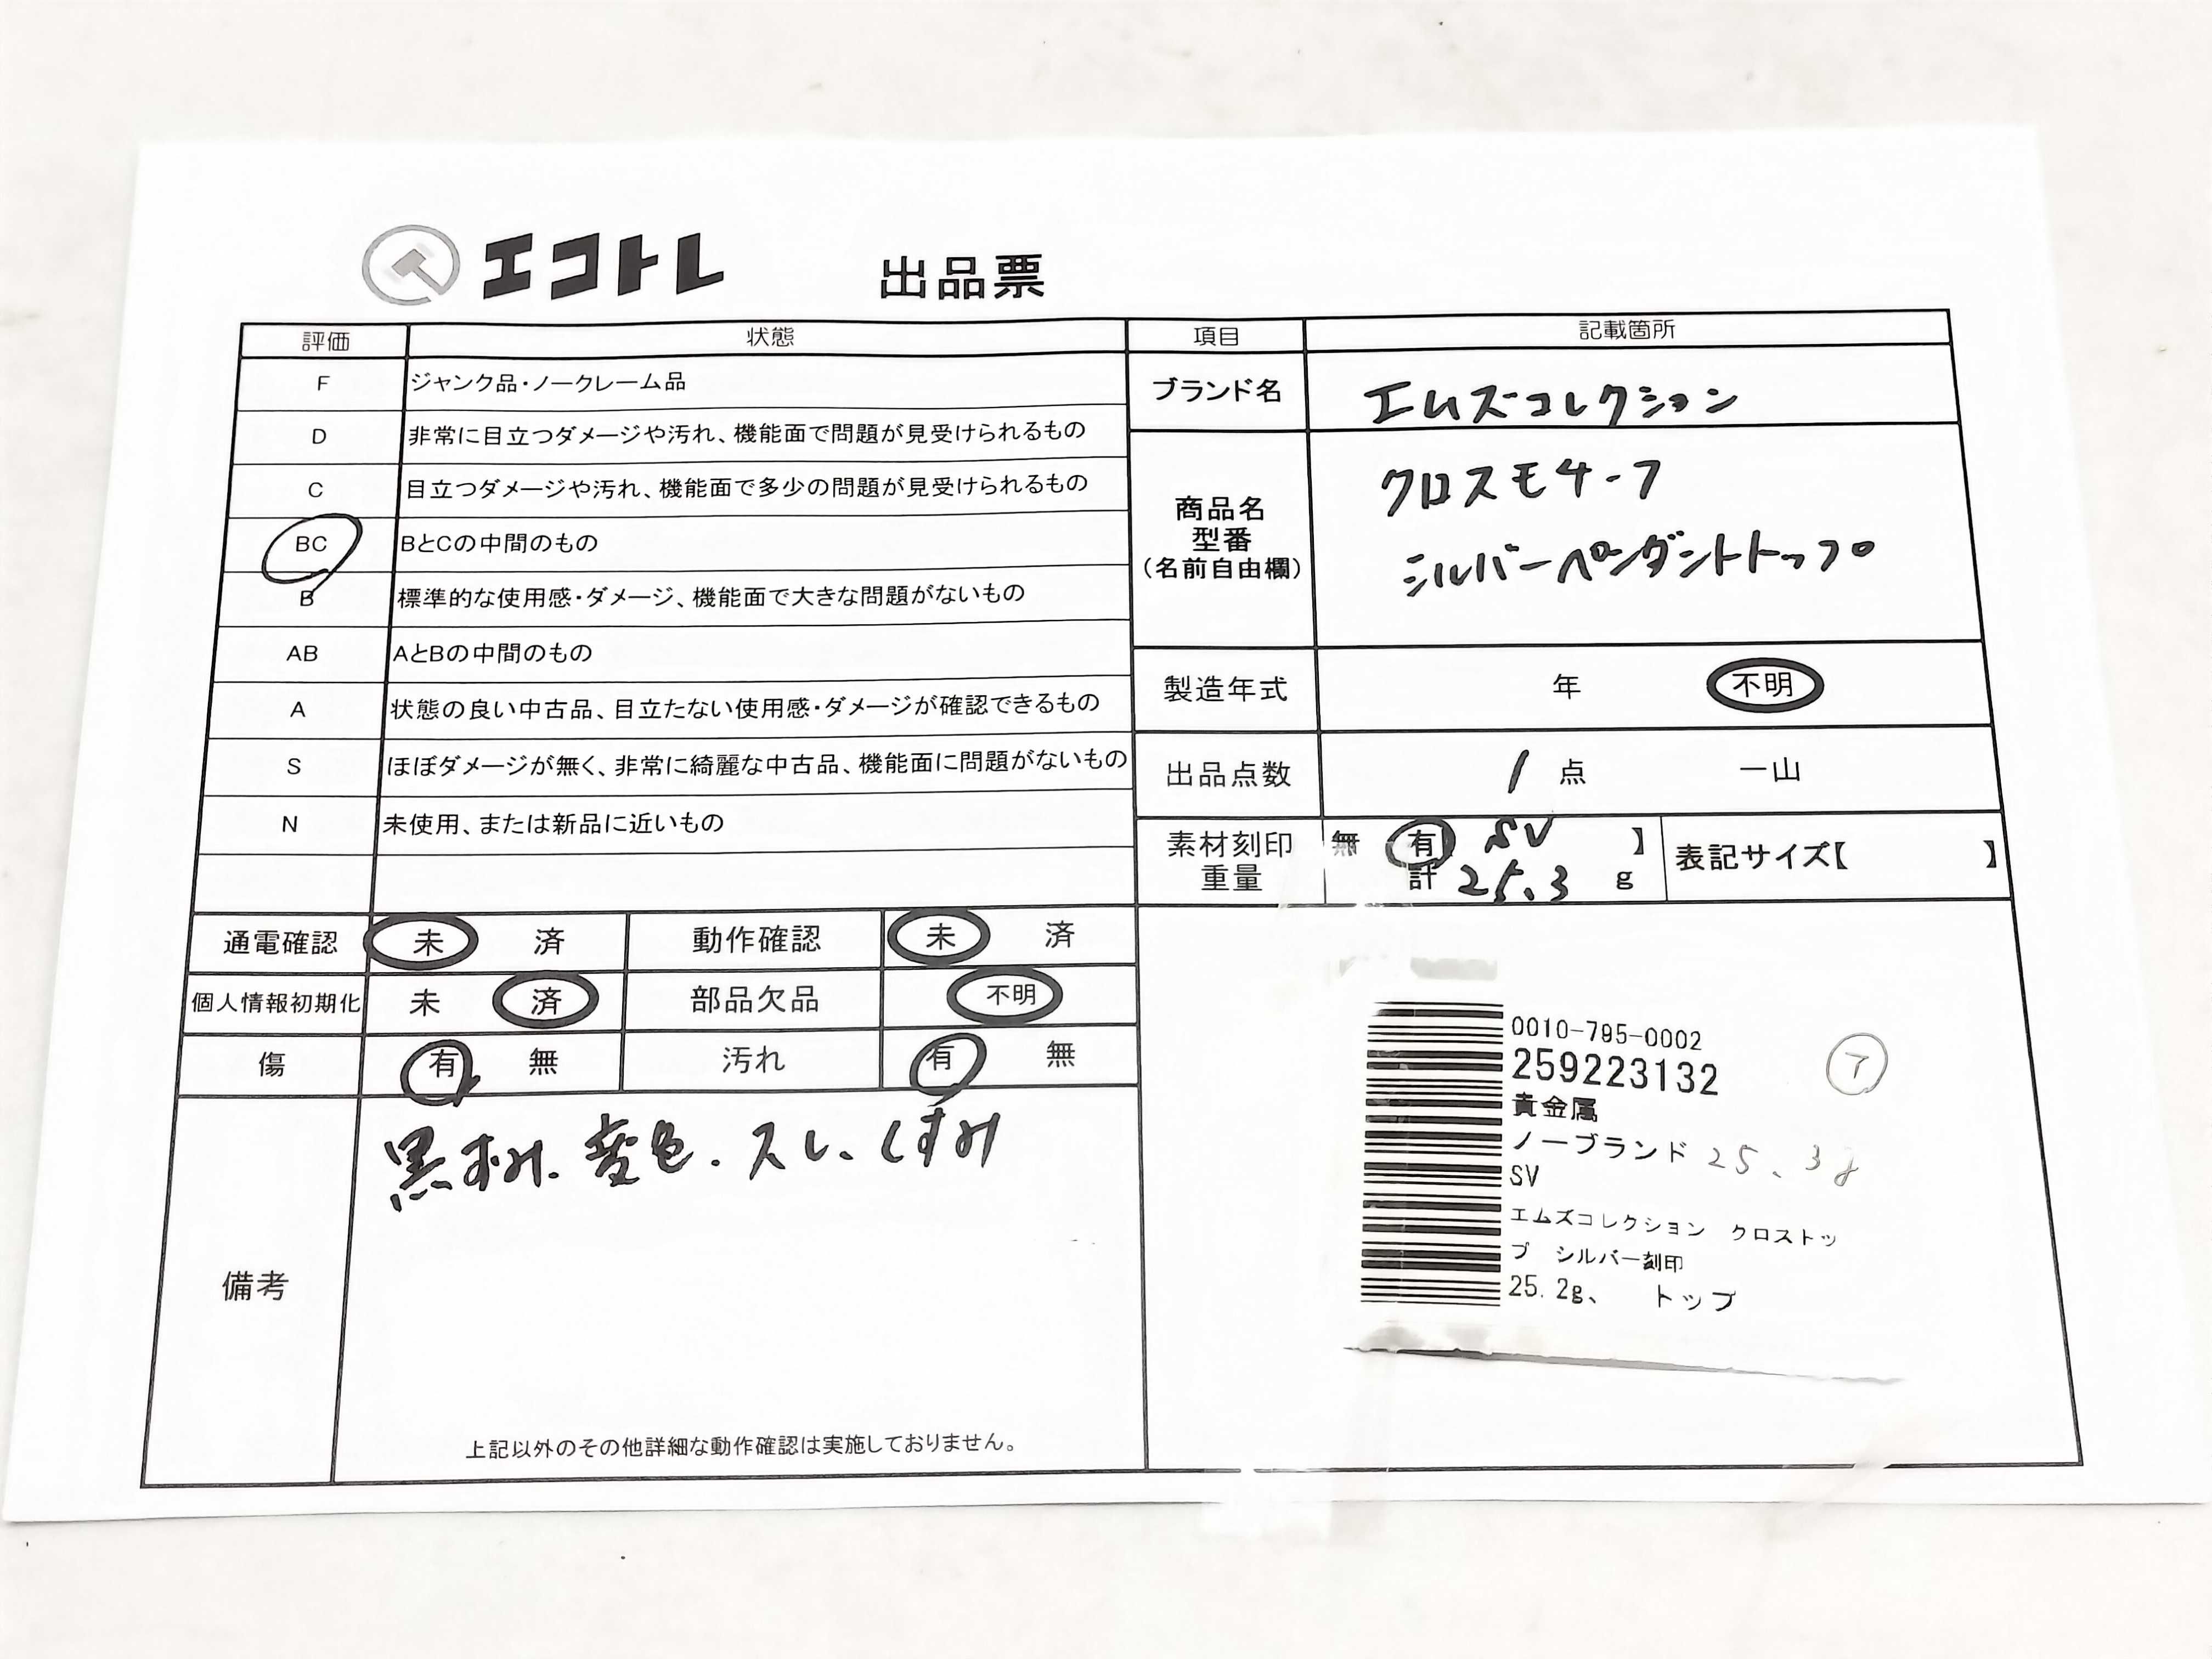 エコトレ
出品票
評価 状態
F ジャンク品・ノークレーム品
D 非常に目立つダメージや汚れ、機能面で問題が見受けられるもの
C 目立つダメージや汚れ、機能面で多少の問題が見受けられるもの
BC BとCの中間のもの
B 標準的な使用感・ダメージ、機能面で大きな問題がないもの
AB AとBの中間のもの
A 状態の良い中古品、目立たない使用感・ダメージが確認できるもの
S ほぼダメージが無く、非常に綺麗な中古品、機能面に問題がないもの
N 未使用、または新品に近いもの
項目 記載箇所
ブランド名 エムズコレクション
商品名
型番
(名前自由欄)
クロスモチーフ
シルバーペンダントトップ
製造年式 年 不明
出品点数 1 点 一山
素材刻印 無 有 SV 】
重量 計 25.3 g
表記サイズ【 】
通電確認 未 済 動作確認 未 済
個人情報初期化 未 済 部品欠品 不明
傷 有 無 汚れ 有 無
備考
黒ずみ、変色、スレ、くすみ
上記以外のその他詳細な動作確認は実施しておりません。
0010-795-0002
259223132
ア
貴金属
ノーブランド 25.3g
SV
エムズコレクション クロストッ
プ シルバー刻印
25.2g、 トップ